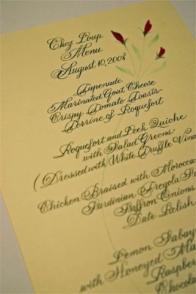 Chez Loup
Menu
August 10, 2008
Tapenade
Marinated Goat Cheese
Crispy Tomato Tarts
Terrine of Roquefort
Roquefort and Leek Quiche
with Salad Greens
(Dressed with White Truffle Vina
Chicken Braised with Moroccan
Sardinian Fregola
Saffron Onions
Date Relish
Lemon Sabay
with Honeyed
Raspber
Chocola